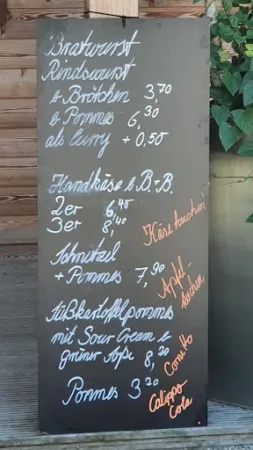 Bratwurst
Rindswurst
& Brötchen 3,70
& Pommes 6,30
als Curry + 0,50
Handkäse & B.+B.
2er 6,40
3er 8,40
Schnitzel
+ Pommes 7,90
Süßkartoffelpommes
mit Sour Cream &
grüner Soße 8,20
Pommes 3,20
Käsekuchen
Apfel-
kuchen
Cornetto
Calippo
Cola